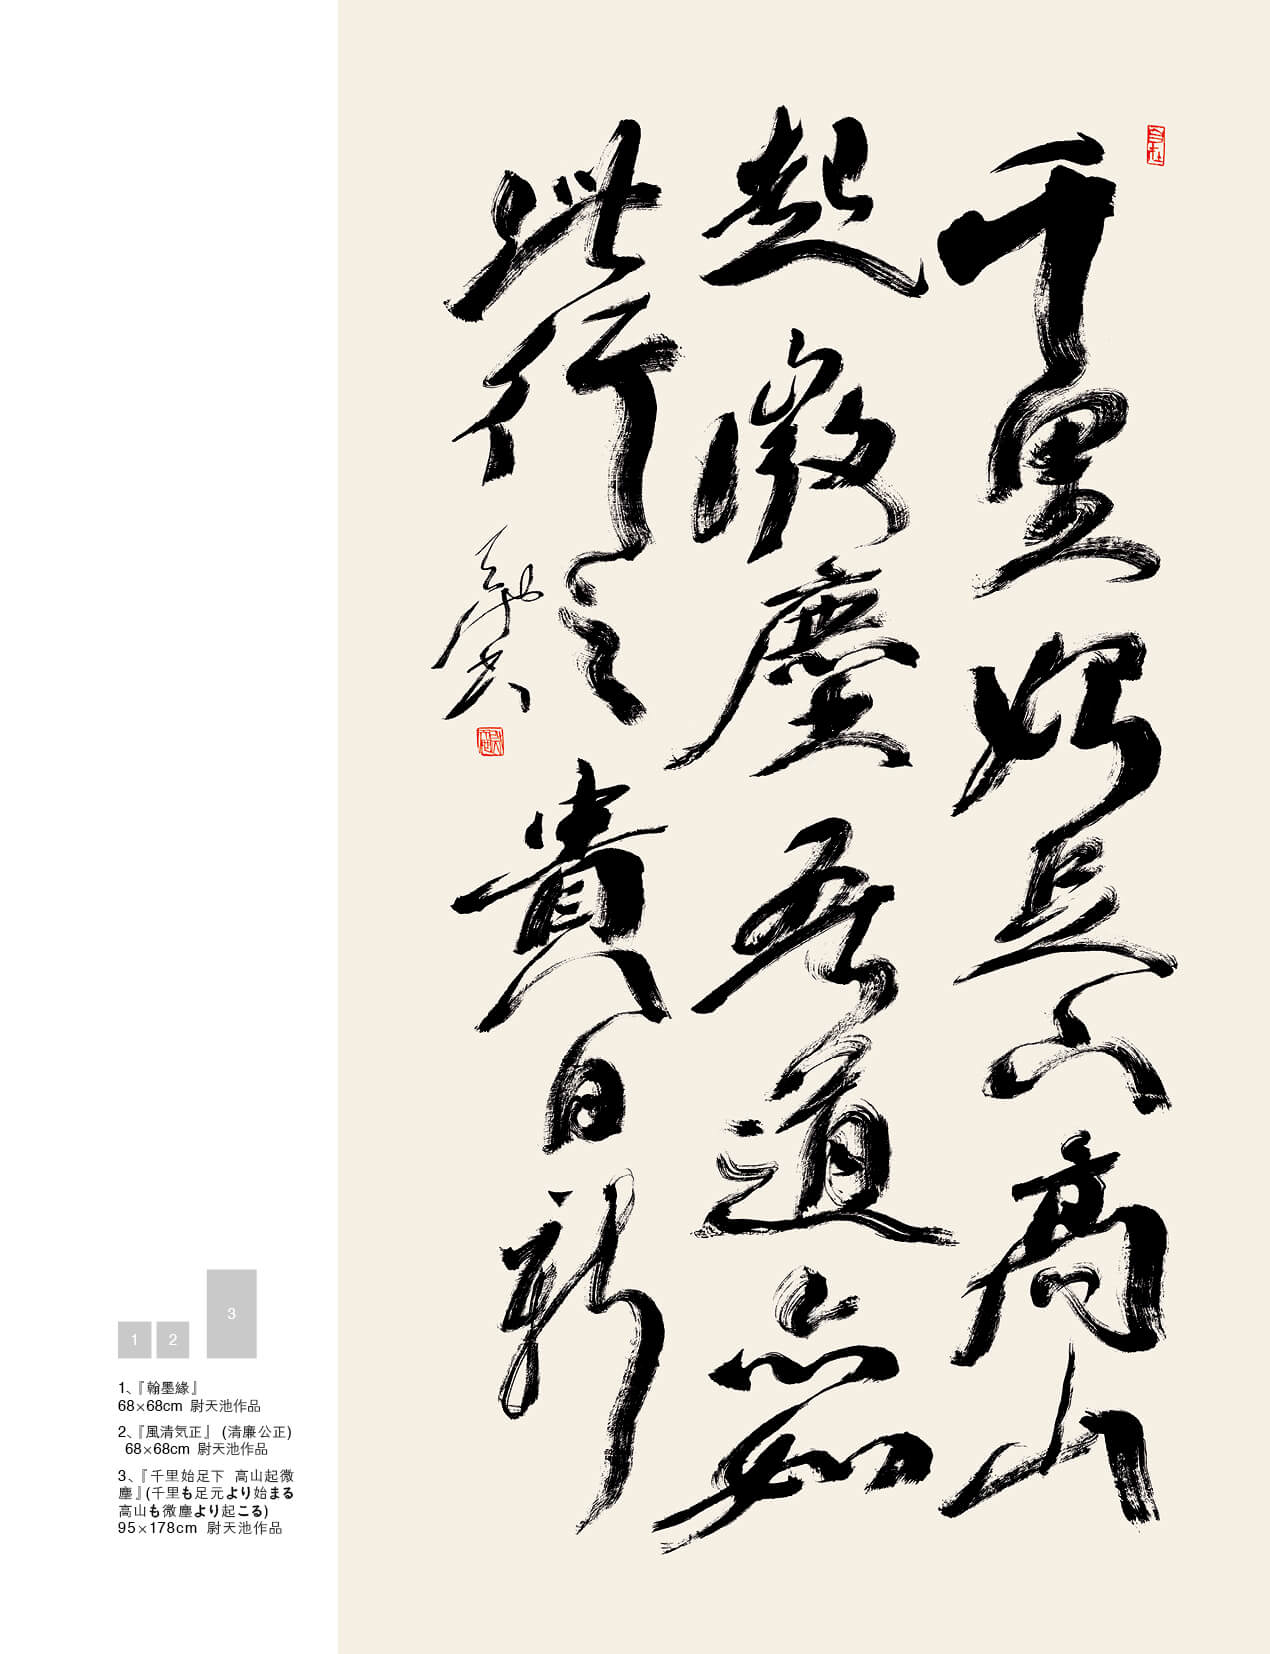 千里始足下高山
起微塵吾道亦如
此行之貴日新
天池書
1
2
3
1、『翰墨緣』
68×68cm 尉天池作品
2、『風清気正』 (清廉公正)
68×68cm 尉天池作品
3、『千里始足下 高山起微
塵』(千里も足元より始まる
高山も微塵より起こる)
95×178cm 尉天池作品